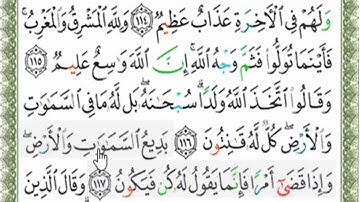 وَلَهُمْ فِى ٱلْءَاخِرَةِ عَذَابٌ عَظِيمٌ ١١٤ وَلِلَّهِ ٱلْمَشْرِقُ وَٱلْمَغْرِبُ ۚ
فَأَيْنَمَا تُوَلُّوا۟ فَثَمَّ وَجْهُ ٱللَّهِ ۚ إِنَّ ٱللَّهَ وَٰسِعٌ عَلِيمٌ ١١٥
وَقَالُوا۟ ٱتَّخَذَ ٱللَّهُ وَلَدًا ۗ سُبْحَٰنَهُۥ ۖ بَل لَّهُۥ مَا فِى ٱلسَّمَٰوَٰتِ
وَٱلْأَرْضِ ۖ كُلٌّ لَّهُۥ قَٰنِتُونَ ١١٦ بَدِيعُ ٱلسَّمَٰوَٰتِ وَٱلْأَرْضِ ۖ
وَإِذَا قَضَىٰٓ أَمْرًا فَإِنَّمَا يَقُولُ لَهُۥ كُن فَيَكُونُ ١١٧ وَقَالَ ٱلَّذِينَ